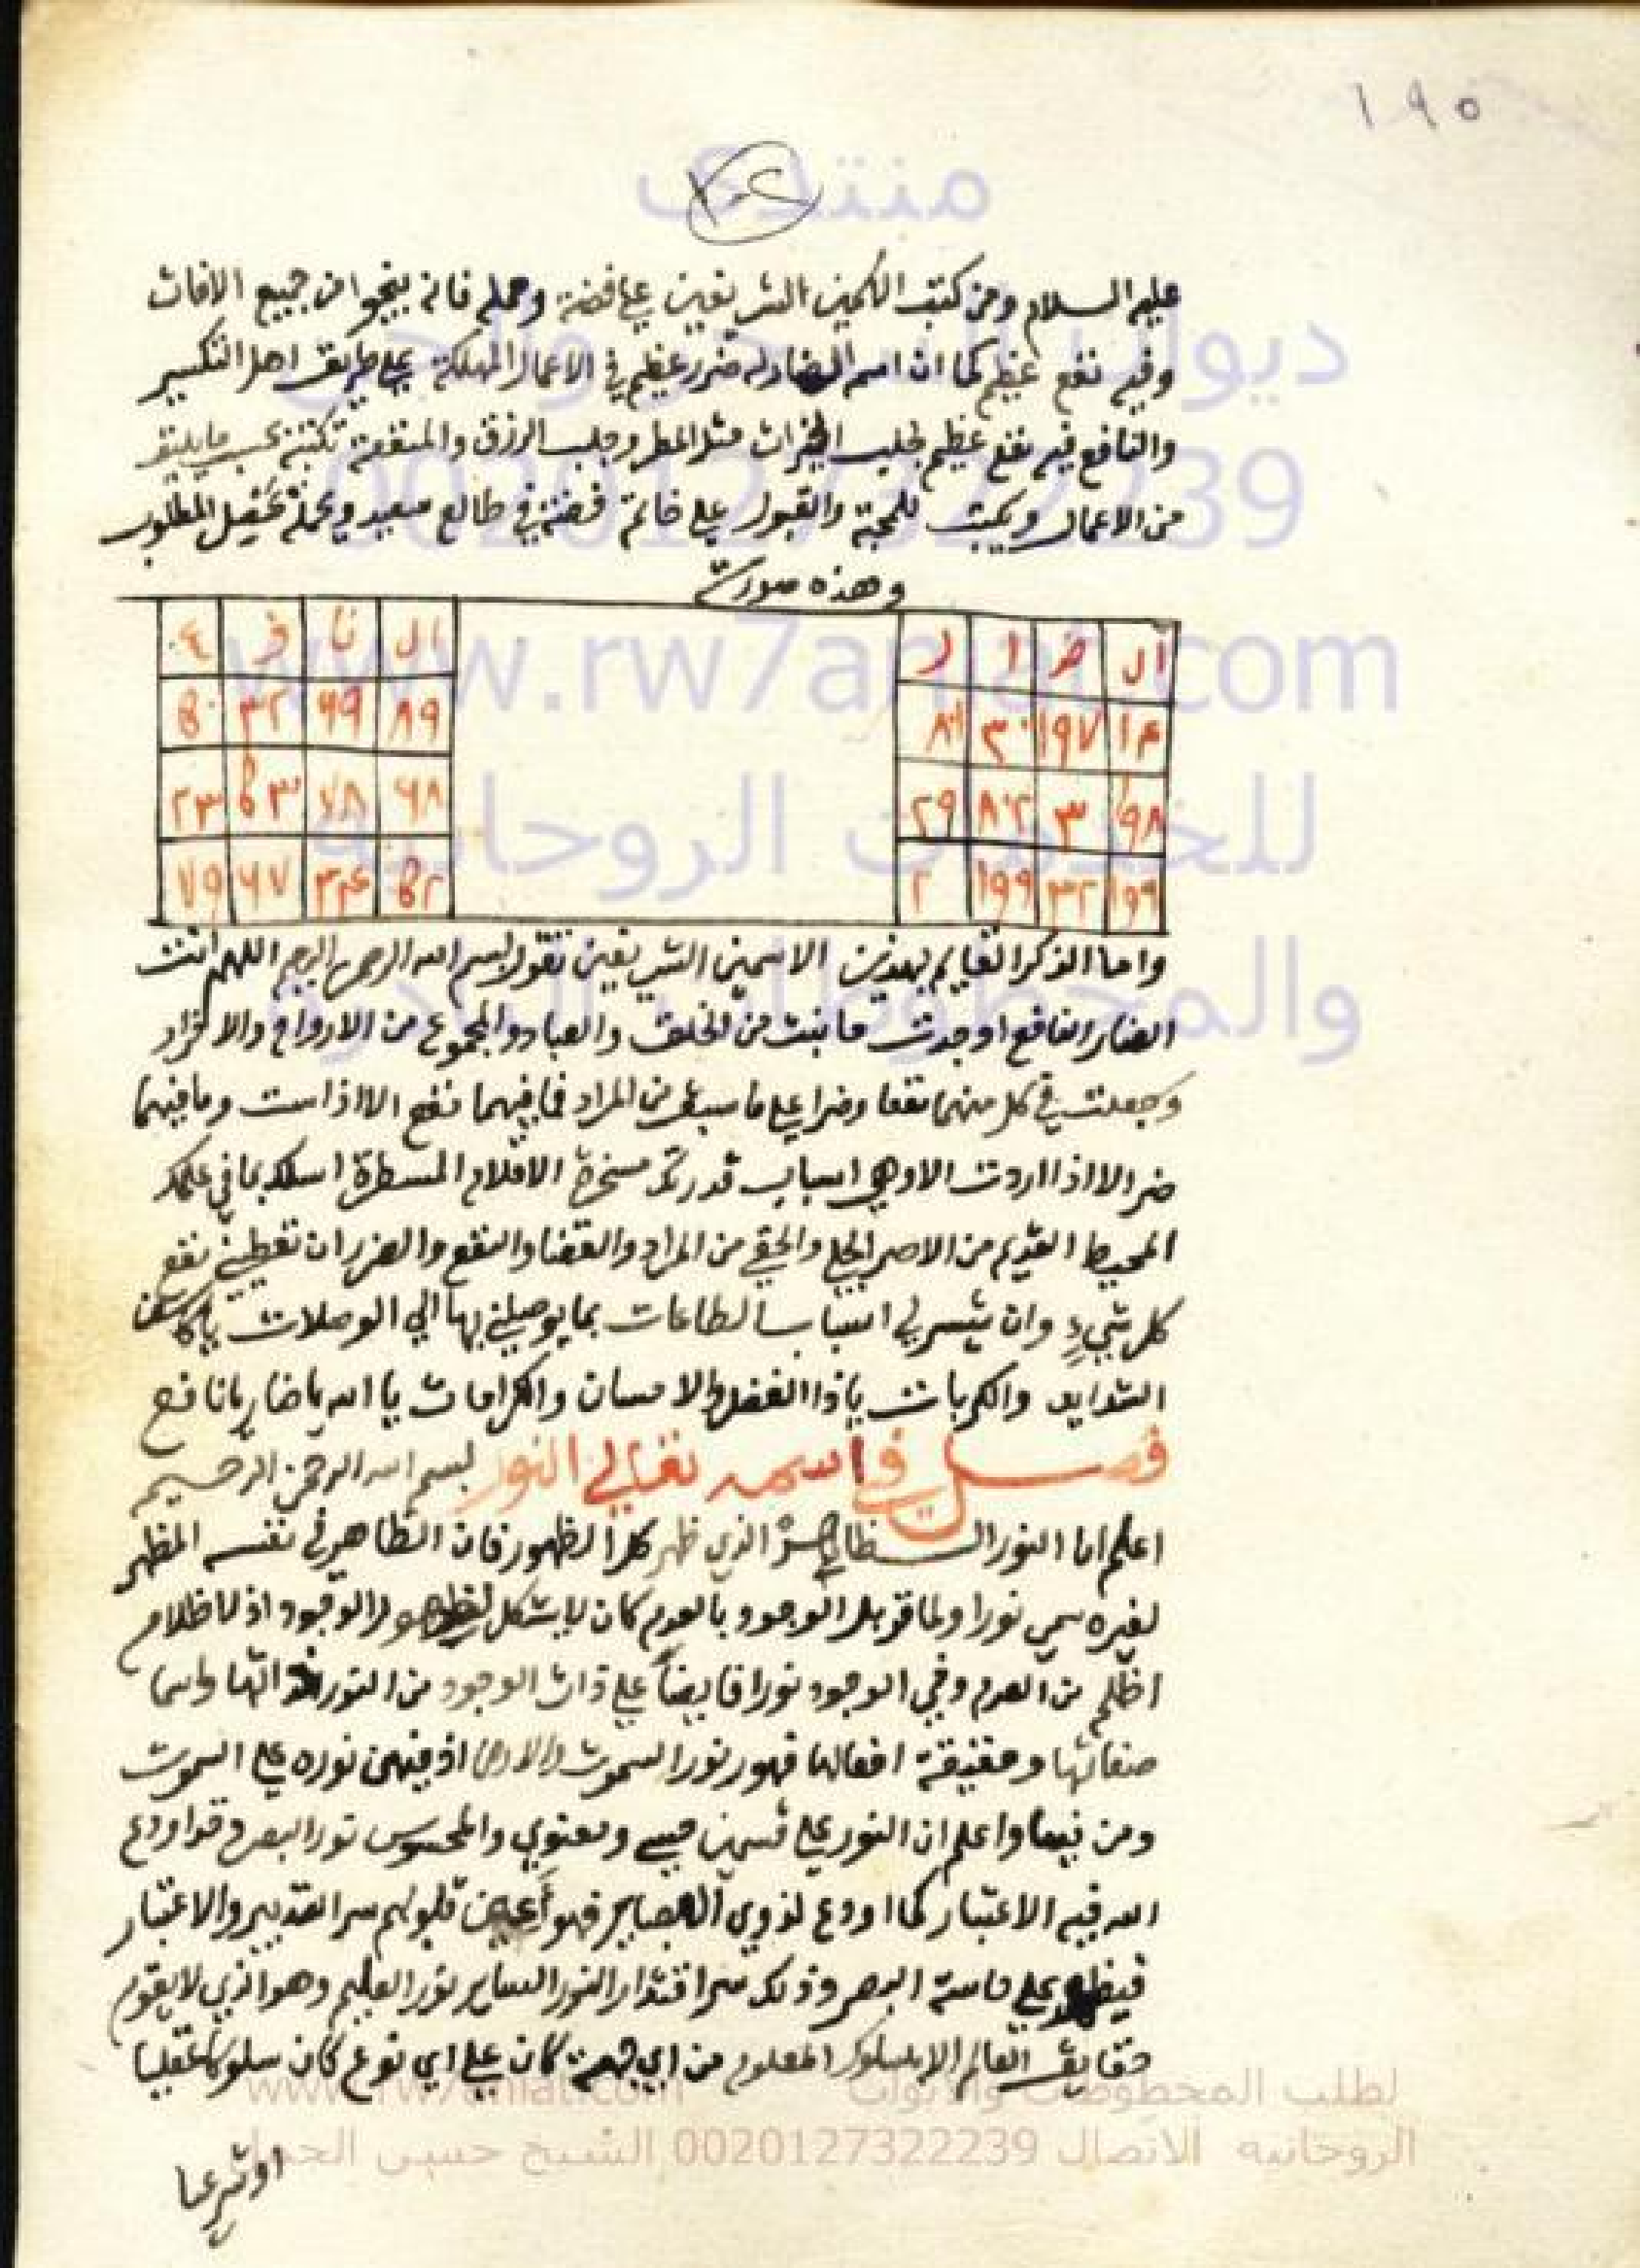 ١٩٥
٢٠٤
منتدى
عليه السلام ومن كتب الاسمين الشريفين على فضة وحمله فانه ينجوا من جميع الافات
وفيه نفع عظيم كما ان اسم الضار له ضرر عظيم في الاعمال المهلكة على طريق اهل التكسير
والنافع فيه نفع عظيم لجلب الخيرات مثل المطر وجلب الرزق والمنفعة تكتبه بحسب ما يليق
من الاعمال ويكتب للمحبة والقبول على خاتم فضة في طالع سعيد ويحمله تحصيل المطلوب
وهذه صورته
ال ض ا ر
١٤ ١٩٧ ٣٠ ٨١
١٩٨ ٣ ٨٢ ٢٩
١٩٩ ٣٢ ١٩٩ ٢
ال نا ف ع
٨٩ ٦٩ ٣٢ ٥٠
٦٨ ٧٨ ٥٣ ٢٣
٥٢ ٣٤ ٦٧ ٧٩
واما الذكر القايم بهذين الاسمين الشريفين تقول بسم الله الرحمن الرحيم اللهم انت
الضار النافع اوجدت ما بنت من الخلق والعباد والمجموع من الازواج والافراد
وجعلت في كل منهما نفعا وضرا على ما سبق من المراد فما فيهما نفع الا اذا شت وما فيهما
ضر الا اذا اردت الا وهي اسباب قدرتك مسخرة الاقلام المسطرة اسلك بما في علمك
المحيط القديم من الامر الجلي والخفي من المراد والقضا والنفع والضر ان تعطيني نفع
كل شيء وان تيسر لي اسباب الطاعات بما يوصلني بها الي الوصلات يا كاشف
الشدايد والكربات يا ذا الفضل والاحسان والكرامات يا الله يا ضار يا نافع
فصل في اسمه تعالي النور بسم الله الرحمن الرحيم
اعلم ان النور الظاهر الذي ظهر كل الظهور فان الظاهر في نفسه المظهر
لغيره سمي نورا ولما قوبل الوجود بالعدم كان لا يشكل لظهور الوجود اذ لا ظلام
اظلم من العدم وفي الوجود نورا فايضا على ذات الوجود من النور
صفاتها وحقيقة افعالها فهو نور السموت والارض اذ فيهن نوره على السموت
ومن فيها واعلم ان النور على قسمين حسي ومعنوي والمحسوس نور البصر وقد اودع
الله فيه الاعتبار كما اودع لذوي البصاير فهو اعين قلوبهم سر التدبير والاعتبار
على حاسة البصر وذلك سر اقتدار النور الساير نور العليم وهو الذي لا يقوم
حقايق العالم الا بسلوك المعلوم من اي جهة كان على اي نوع كان سلوكا عقليا
او شرعيا
www.rw7aniat.com
لطلب المخطوطات والابواب
الروحانيه الاتصال 0020127322239 الشيخ حسن